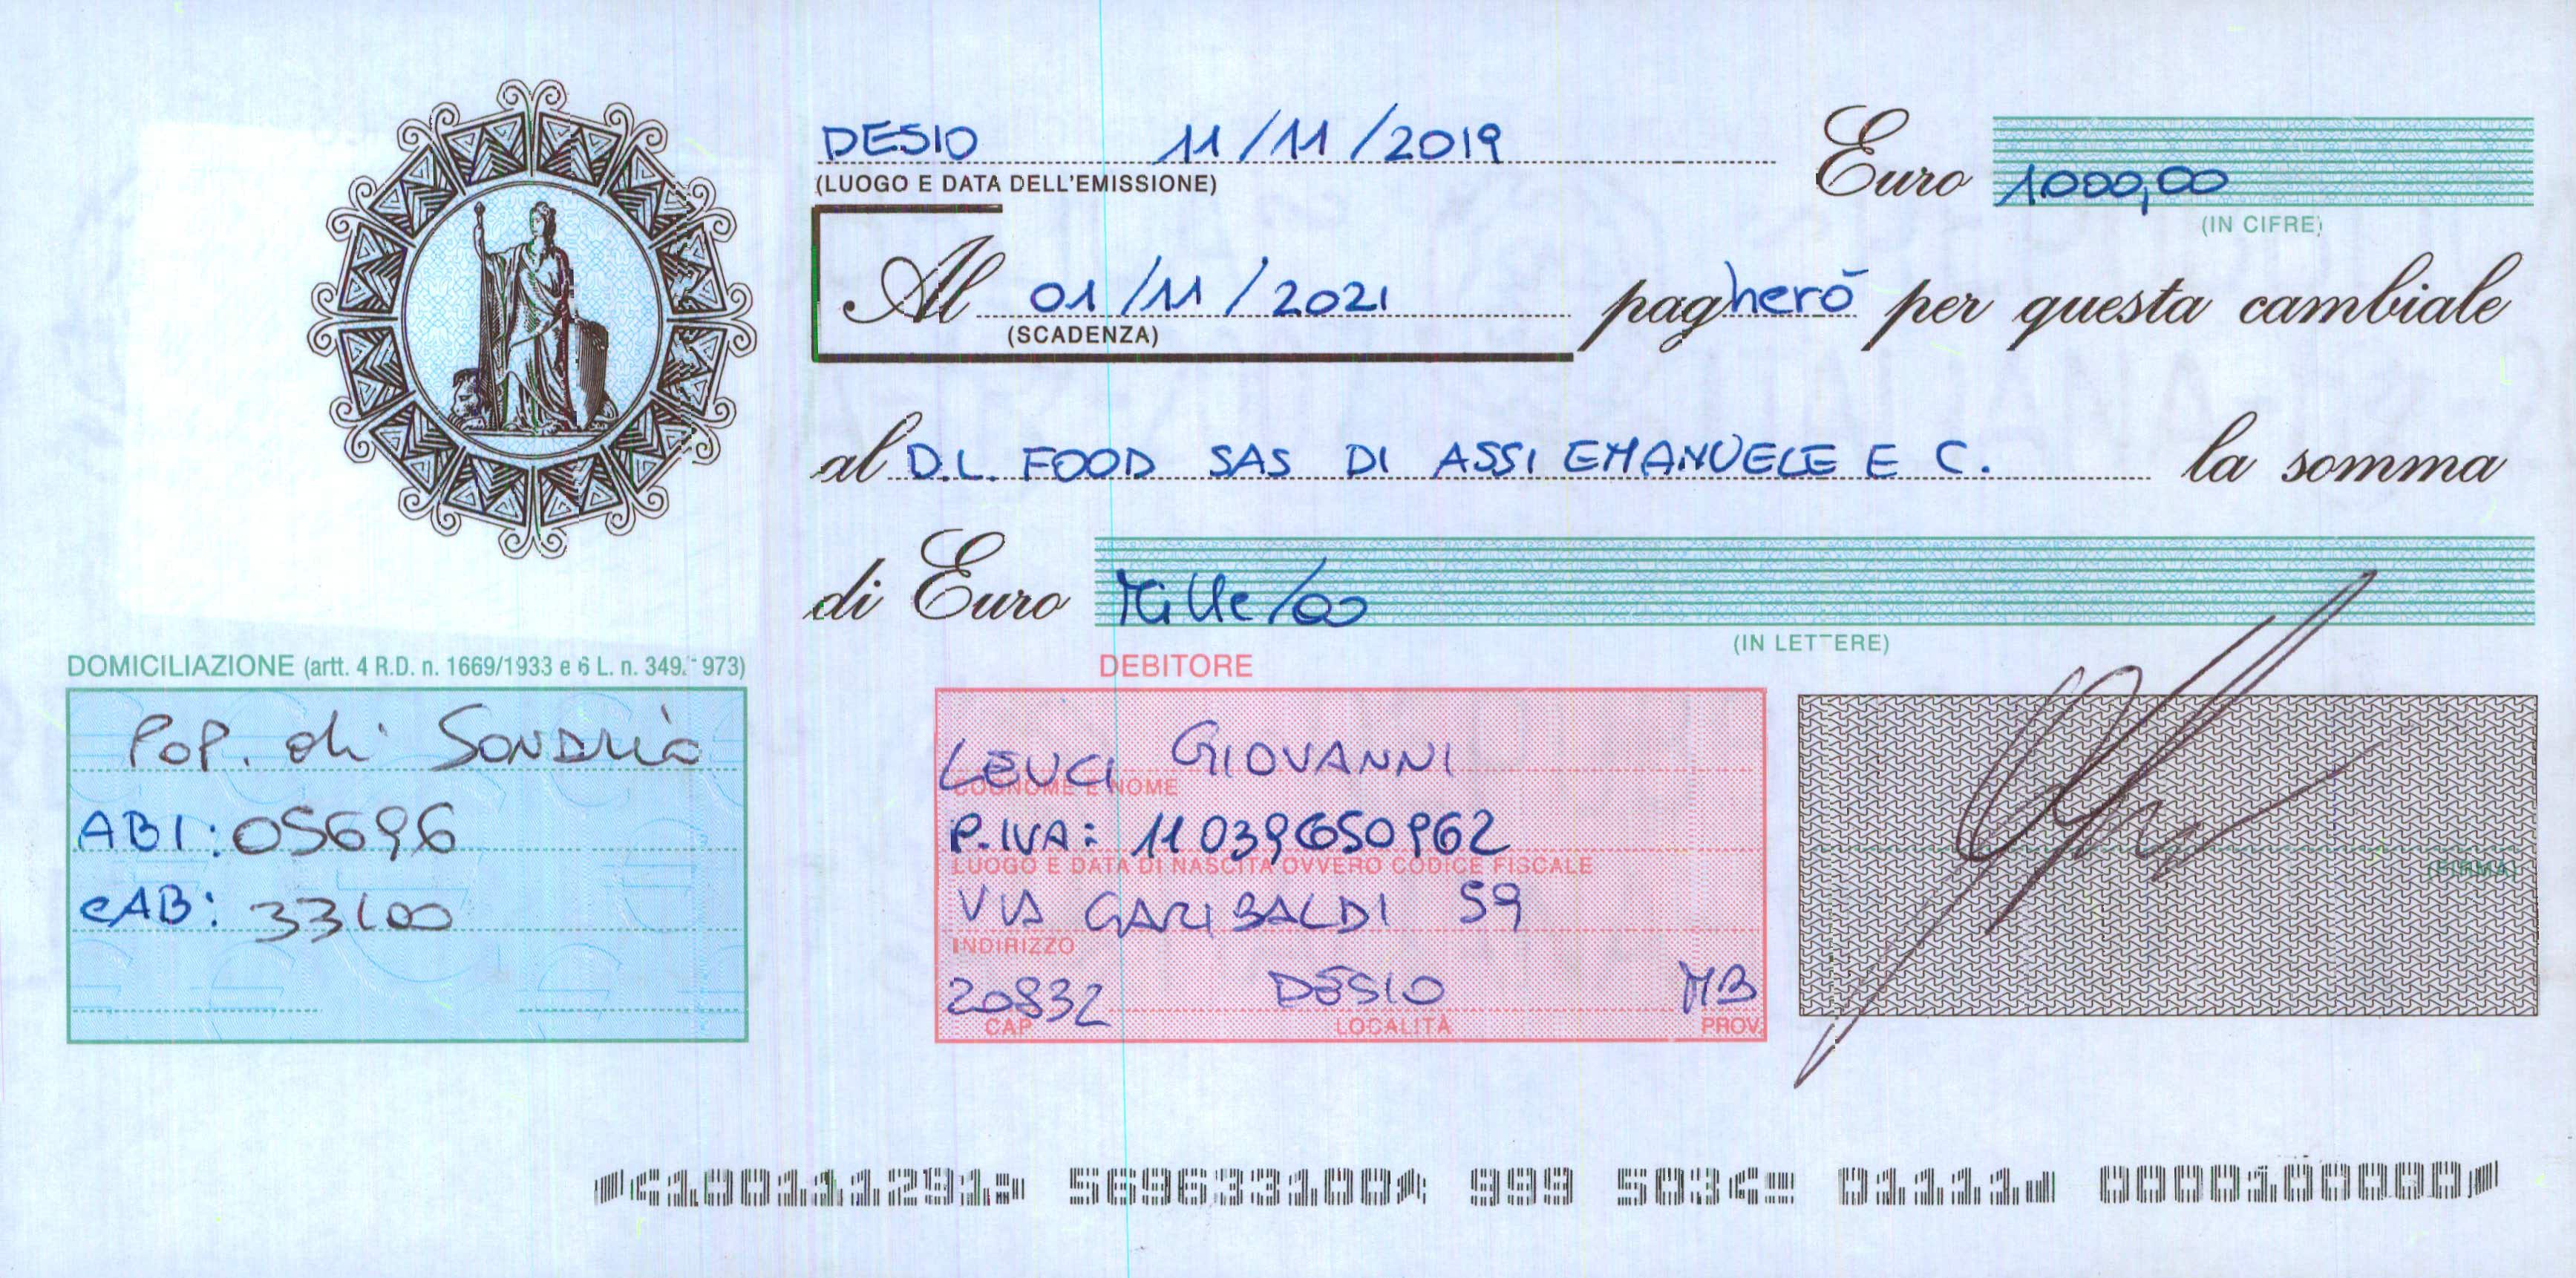 DESIO 11/11/2019 Euro 1.000,00
(LUOGO E DATA DELL'EMISSIONE)
(IN CIFRE)
Al 01/11/2021 pagherò per questa cambiale
(SCADENZA)
al D.L. FOOD SAS DI ASSI EMANUELE E C. la somma
di Euro Mille/00
(IN LETTERE)
DOMICILIAZIONE (artt. 4 R.D. n. 1669/1933 e 6 L. n. 349. 973)
POP. di SONDRIO
ABI: 05696
CAB: 33100
DEBITORE
LEUCI GIOVANNI
COGNOME E NOME
P.IVA: 11039650962
LUOGO E DATA DI NASCITA OVVERO CODICE FISCALE
VIA GARIBALDI 59
INDIRIZZO
20832 DESIO MB
CAP LOCALITÀ PROV.
(FIRMA)
100111291 569633100 999 5034 01111 0000100000